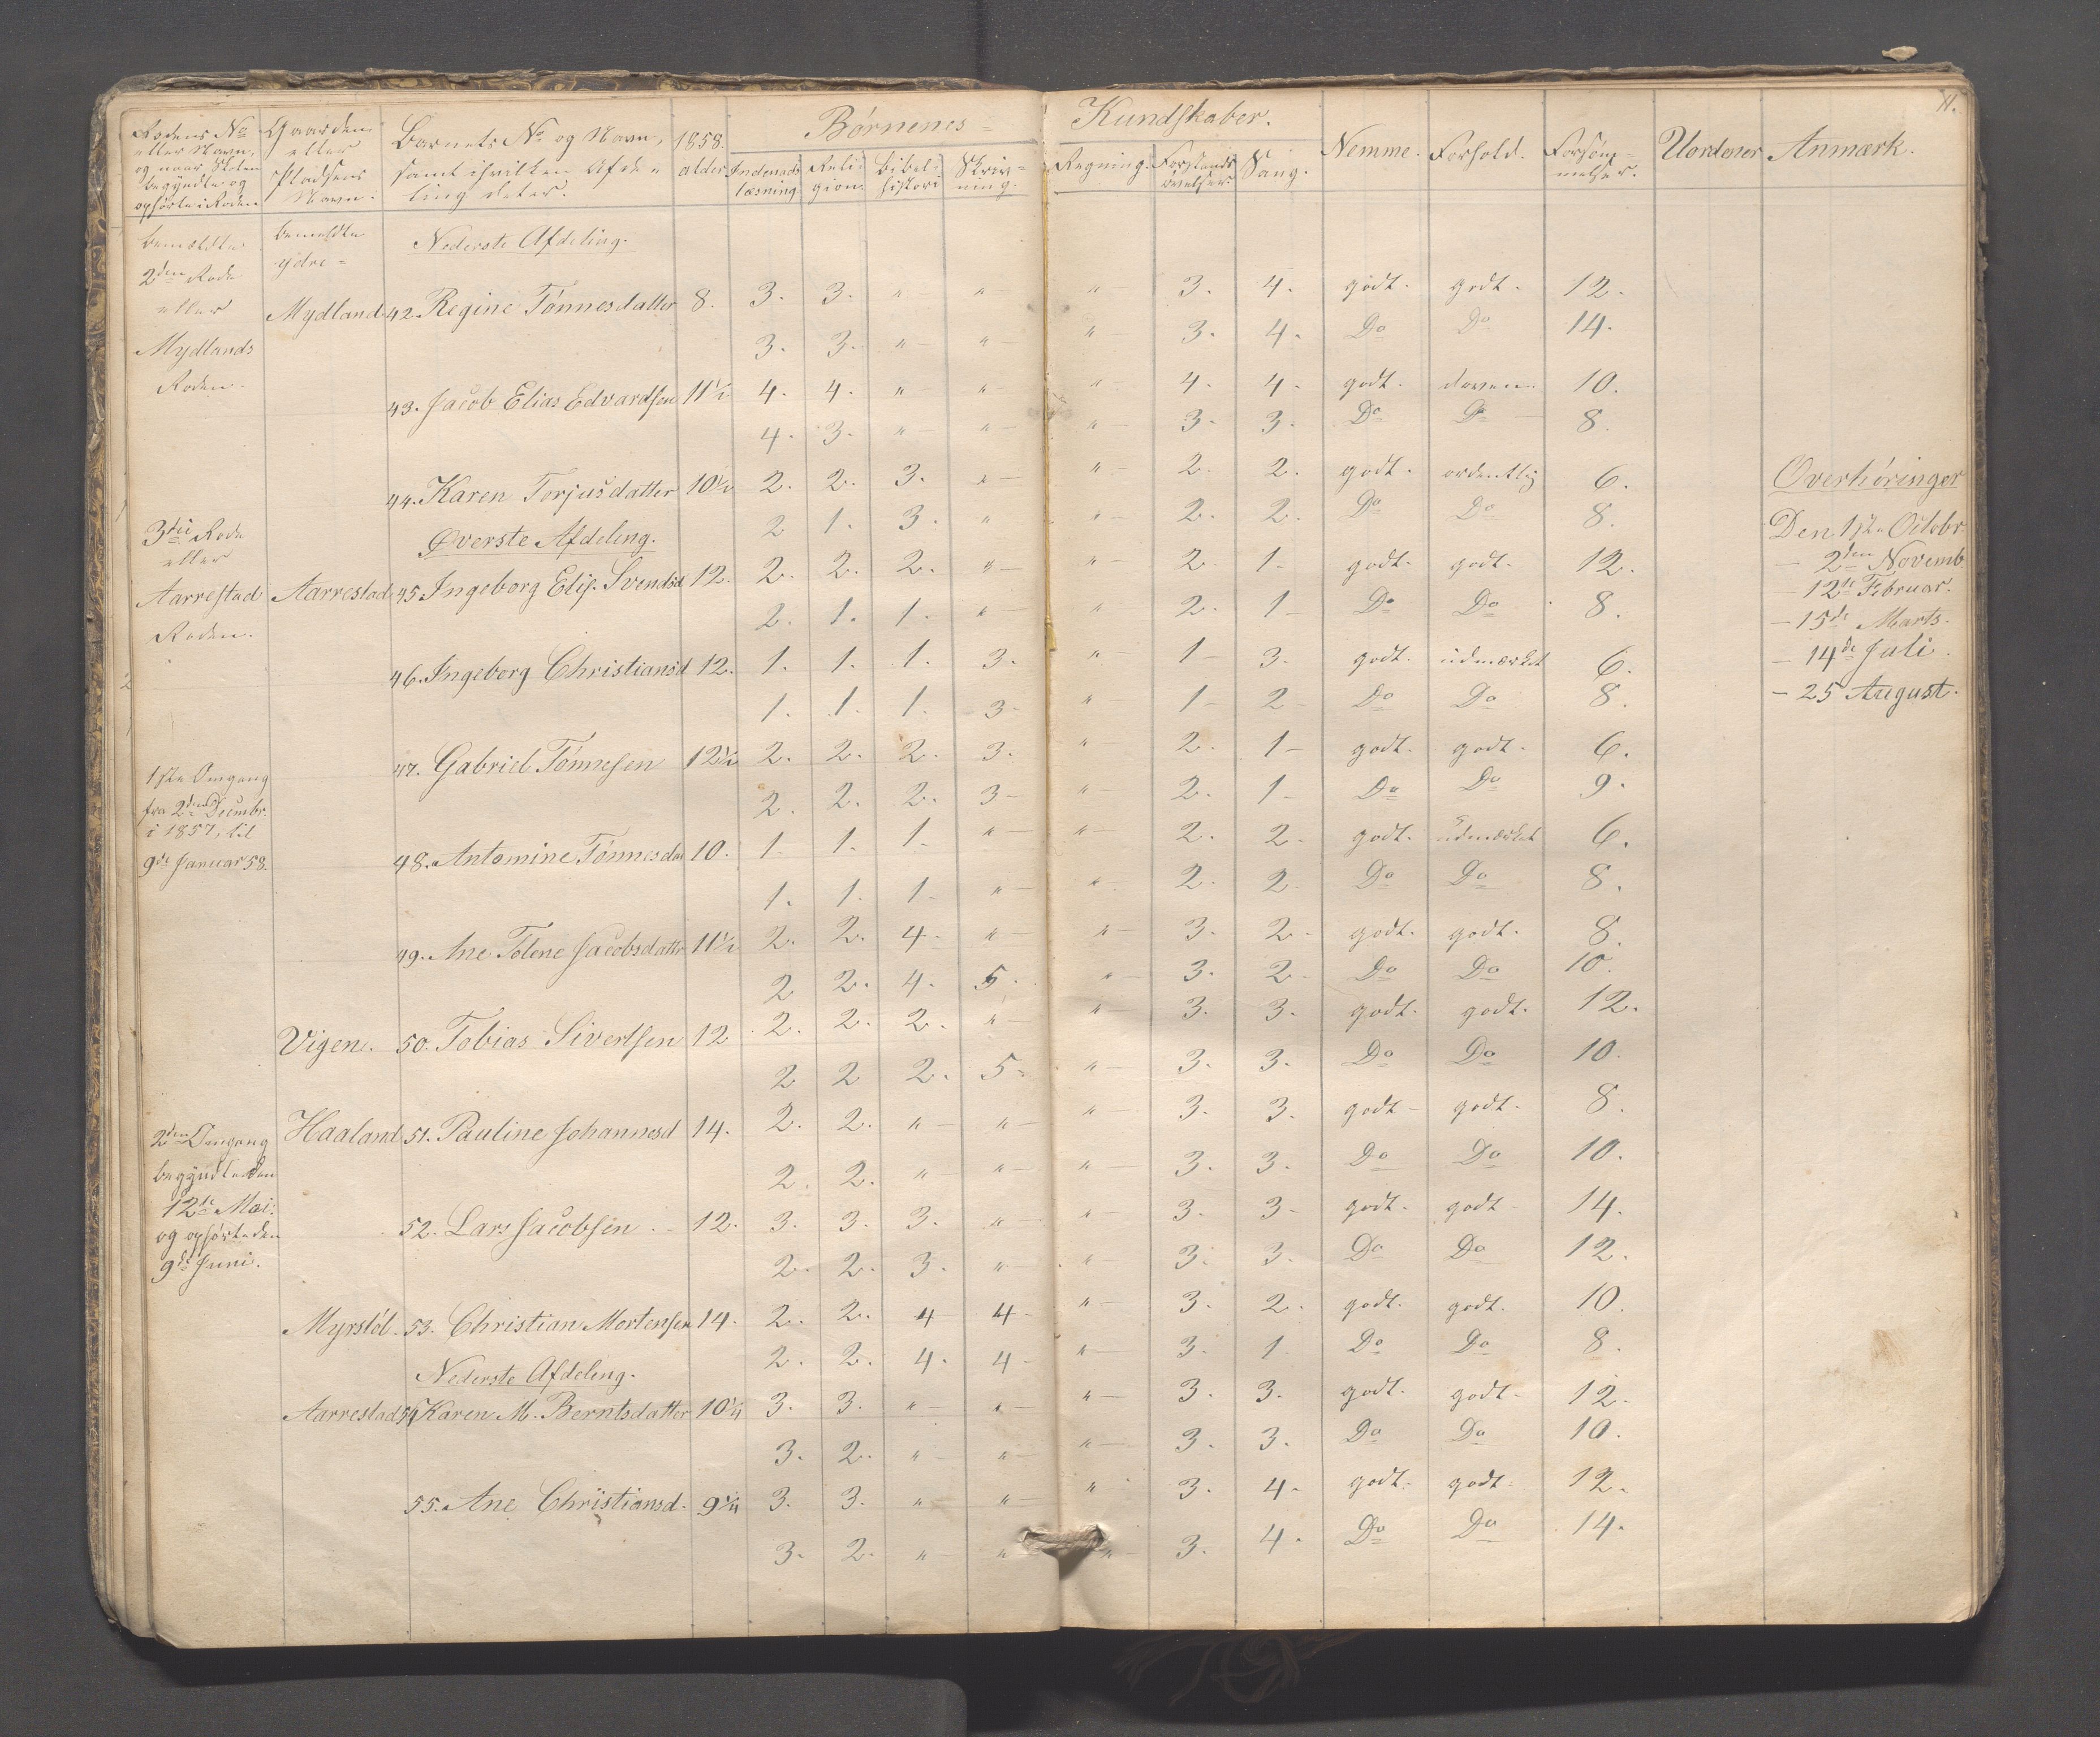 11.
Børnenes Kundskaber.
Rodens No eller Navn, og naar Skolen begyndte og ophørte i Roden
Gaarden eller Pladsens Navn.
Barnets No og Navn, samt i hvilken Afdeling deter.
1858. alder.
Indenads læsning
Religion.
Bibelhistori
Skrivning.
Regning.
Forstands øvelser.
Sang.
Nemme.
Forhold.
Forsømmelser.
Uordener
Anmærk.
bemeldte 2den Rode eller Mydlands Roden.
bemeldte ydre
Nederste Afdeling.
Mydland 42. Regine Tønnesdatter 8. 3. 3. " " " 3. 4. godt. godt. 12.
3. 3. " " " 3. 4. Do Do 14.
43. Jacob Elias Edvardsen 11½ 4. 4. " " " 4. 4. godt. doven. 10.
4. 3. " " " 3. 3. Do Do 8.
44. Karen Torjusdatter 10½ 2. 2. 3. " " 2. 2. godt. ordentlig 6.
2 1. 3. " " 2. 2. Do Do 8.
3die Rode eller Aarrestad Roden.
Øverste Afdeling.
Aarrestad 45 Ingeborg Elis. Svendsd 12. 2. 2. 2. " " 2. 1. godt. godt. 12.
2. 1. 1. " " 2. 1 Do Do 8.
46. Ingeborg Christiansd 12. 1. 1. 1. 3. " 1 3. godt. üdmærket 6.
1. 1. 1. 3 " 1 2 Do Do 8.
47. Gabriel Tønnesen 12½ 2. 2. 2. 3. " 2. 1 godt. godt. 6.
2. 2. 2. 3 " 2. 1 Do Do 9.
48. Antomine Tønnesdat 10. 1. 1. 1. " " 2. 2. godt. üdmærket 6.
1. 1. 1. " " 2. 2 Do Do 8.
49. Ane Tolene Jacobsdatter 11½ 2. 2. 4. " " 3. 2. godt. godt. 8.
2 2. 4. 5. " 3. 2. Do Do 10.
Vigen. 50. Tobias Sivertsen 12 2. 2. 2. " " 3. 3. godt. godt. 12.
2 2 2. 5. " 3. 3. Do Do 10.
Haaland 51. Pauline Johannesd 14. 2. 2. " " " 3. 3. godt godt. 8.
2. 2. " " " 3. 3. Do Do 10.
52. Lars Jacobsen 12. 3. 3. 3. " " 3. 3 godt. godt 14.
2. 2. 3. " " 3. 3. Do Do 12.
Myrstøl. 53. Christian Mortensen 14. 2. 2. 4 4 " 3. 2. godt. godt. 10.
2. 2. 4. 4 " 3. 1 Do Do 8.
Nederste Afdeling.
Aarrestad 54 Karen M. Berntsdatter 10¼ 3. 3. " " " 3. 3. godt. godt. 12.
3. 2. " " " 3. 3. Do Do 10.
55. Ane Christiansd. 9¼ 3. 3. " " " 3. 4. godt. godt. 12.
3. 2. " " " 3. 4. Do Do 14.
1ste Omgang
fra 2den Decembr.
i 1857, til
9de Januar 58.
2den Omgang
begyndte den
12te Mai.
og ophørte den
9de Juni.
Overhøringer
Den 1ste Octobr
- 2den Novemb.
- 12te Februar.
- 15de Marts.
- 14de Juli.
- 25 August.